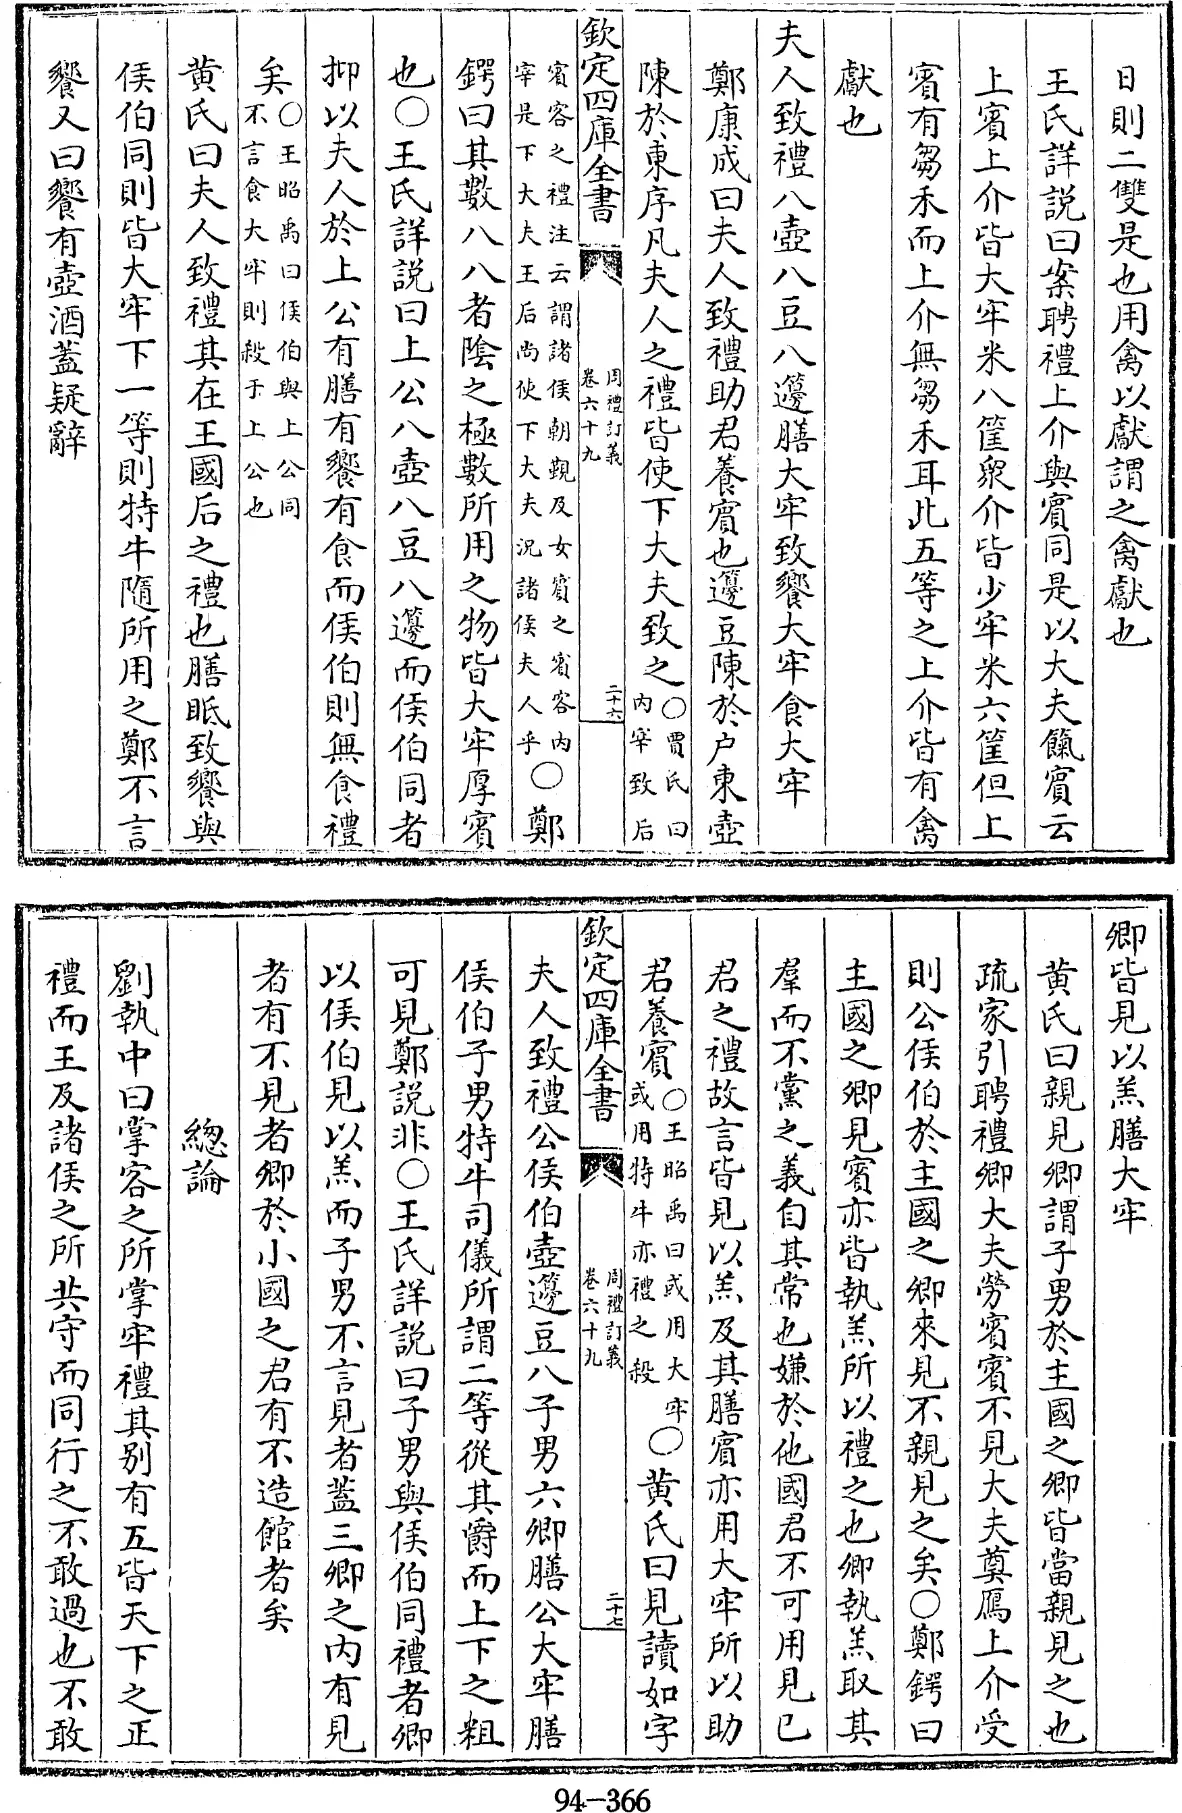 日則二雙是也用禽以獻謂之禽獻也
王氏詳説曰案聘禮上介與賓同是以大夫餼賓云
上賓上介皆大牢米八筐衆介皆少牢米六筐但上
賓有芻禾而上介無芻禾耳此五等之上介皆有禽
獻也
夫人致禮八壺八豆八籩膳大牢致饗大牢食大牢
鄭康成曰夫人致禮助君養賓也籩豆陳於户東壺
陳於東序凡夫人之禮皆使下大夫致之○賈氏曰
内宰致后
欽定四庫全書
周禮訂義
卷六十九
二十六
賓客之禮注云謂諸侯朝覲及女賓之賓客内
宰是下大夫王后尚使下大夫況諸侯夫人乎○鄭
鍔曰其數八八者陰之極數所用之物皆大牢厚賓
也○王氏詳説曰上公八壺八豆八籩而侯伯同者
抑以夫人於上公有膳有饗有食而侯伯則無食禮
矣○王昭禹曰侯伯與上公同
不言食大牢則殺于上公也
黄氏曰夫人致禮其在王國后之禮也膳眡致饗與
侯伯同則皆大牢下一等則特牛隨所用之鄭不言
饗又曰饗有壺酒蓋疑辭
卿皆見以羔膳大牢
黄氏曰親見卿謂子男於主國之卿皆當親見之也
疏家引聘禮卿大夫勞賓賓不見大夫奠鴈上介受
則公侯伯於主國之卿來見不親見之矣○鄭鍔曰
主國之卿見賓亦皆執羔所以禮之也卿執羔取其
羣而不黨之義自其常也嫌於他國君不可用見已
君之禮故言皆見以羔及其膳賓亦用大牢所以助
君養賓○王昭禹曰或用大牢
或用特牛亦禮之殺○黄氏曰見讀如字
欽定四庫全書
周禮訂義
卷六十九
二十七
夫人致禮公侯伯壺籩豆八子男六卿膳公大牢膳
侯伯子男特牛司儀所謂二等從其爵而上下之粗
可見鄭説非○王氏詳説曰子男與侯伯同禮者卿
以侯伯見以羔而子男不言見者蓋三卿之内有見
者有不見者卿於小國之君有不造館者矣
總論
劉執中曰掌客之所掌牢禮其别有五皆天下之正
禮而王及諸侯之所共守而同行之不敢過也不敢
94-366